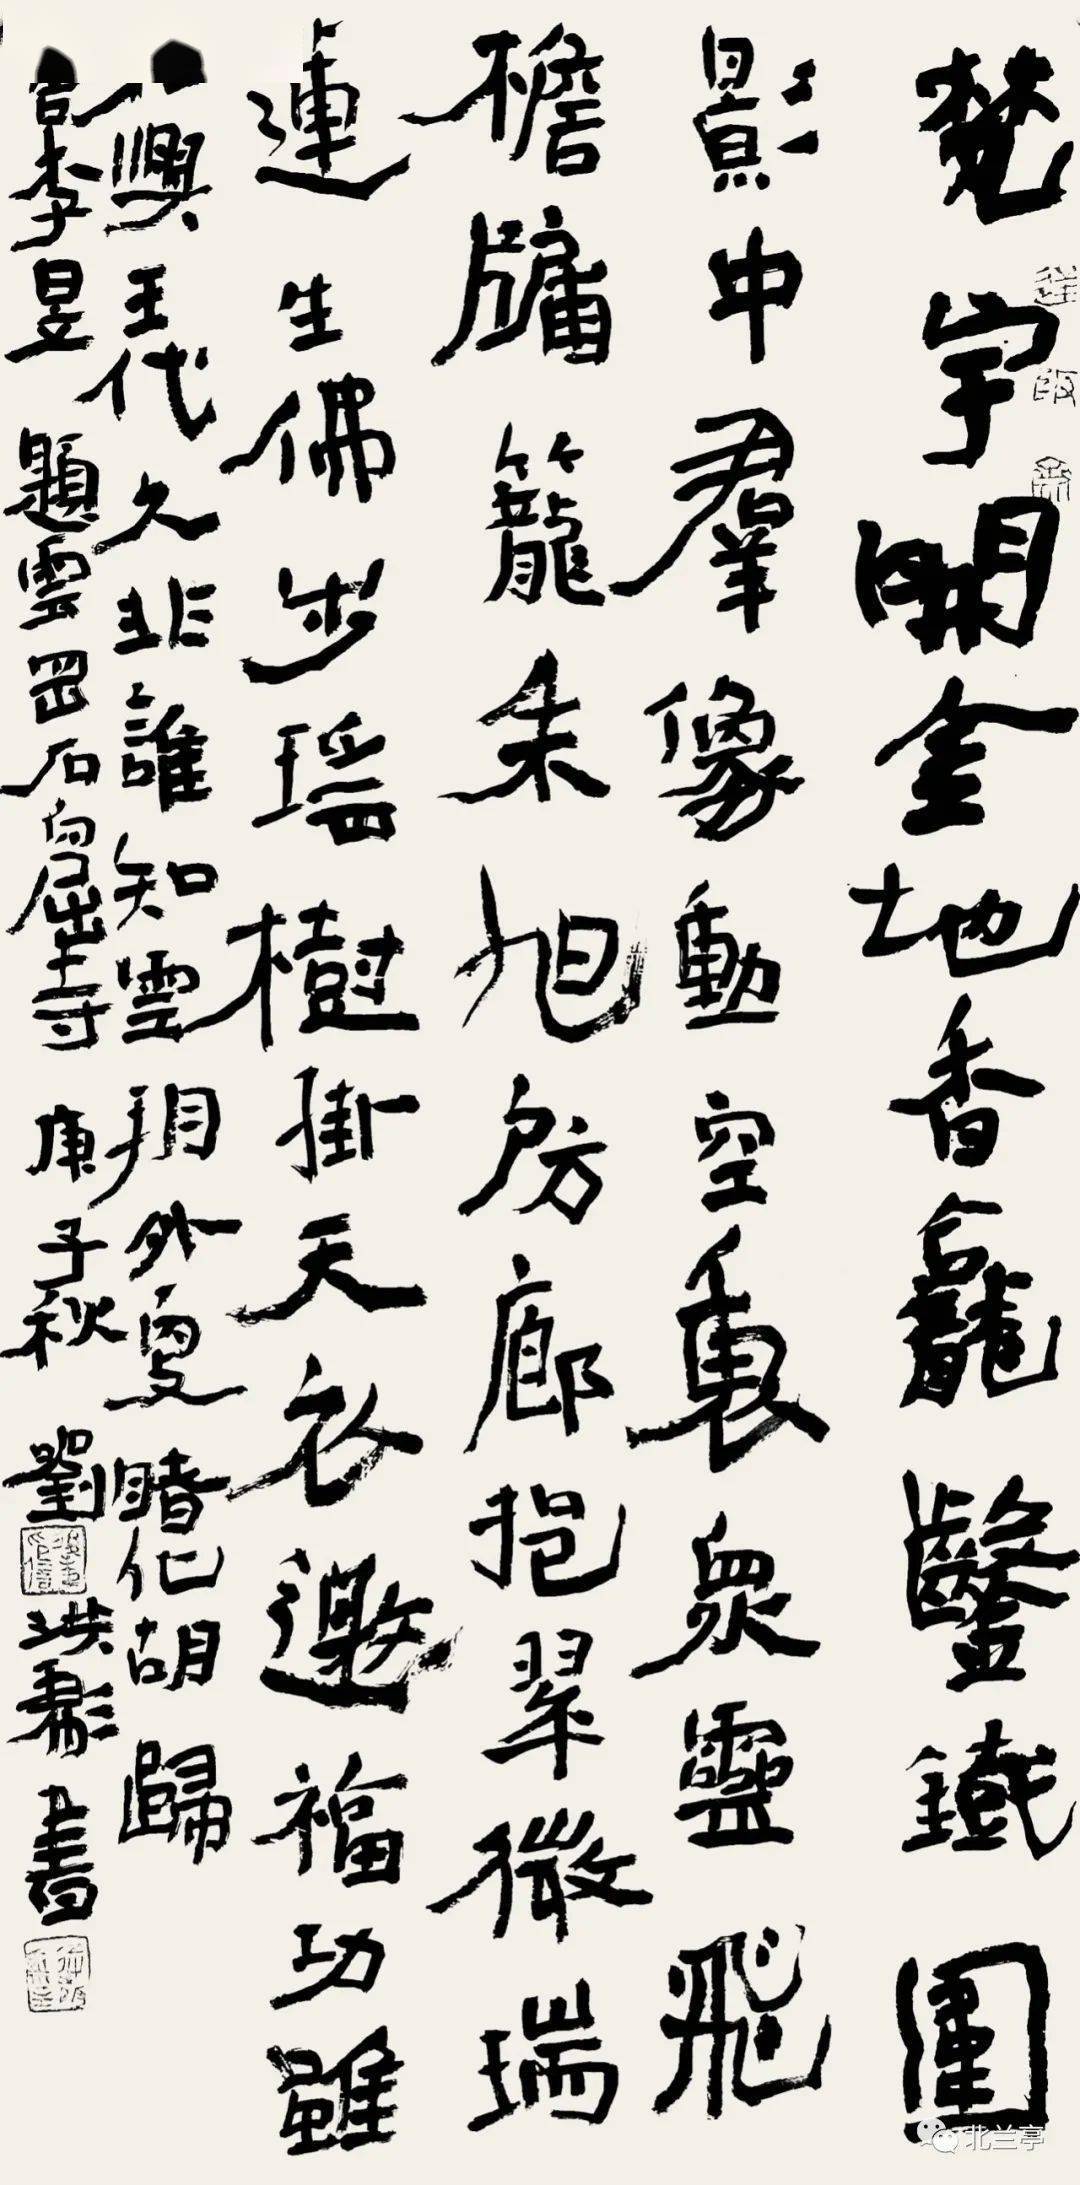 梵宇開金地香龕鑿鐵圍
影中羣像動空裏眾靈飛
檐牖籠朱旭房廊抱翠微瑞
連生佛步瑤樹掛天衣邀福功雖
興王代久非誰知雲朔外更睹化胡歸
李昱 題雲岡石窟寺 庚子秋 劉洪彪書
北兰亭